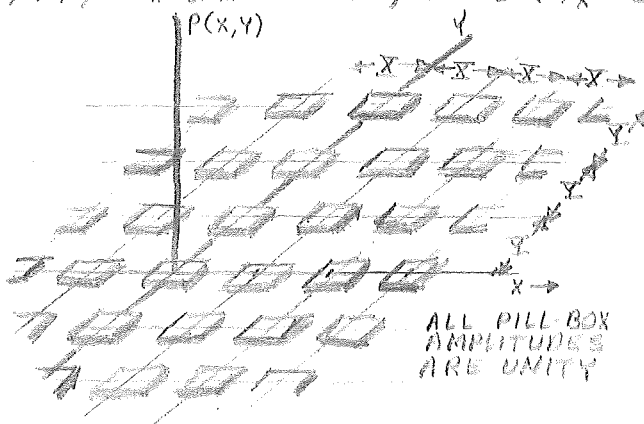 P(X,Y)
Y
X X X X
Y
Y
Y
X →
ALL PILL-BOX
AMPLITUDES
ARE UNITY